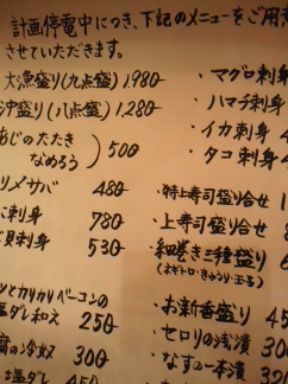 計画停電中につき、下記のメニューをご用
させていただきます。
大漁盛り(九点盛) 1,980
沖盛り(八点盛) 1,280
あじのたたき
なめろう
500
メサバ 480
刺身 780
貝刺身 530
カリカリベーコンの
塩ダレ和え 250
の冷奴 300
塩ダレ 450
・マグロ刺身
・ハマチ刺身
・イカ刺身 4
・タコ刺身 4
・特上寿司盛り合せ 1
・上寿司盛り合せ 8
・細巻き三種盛り 6
(ネギトロ・きゅうり・玉子)
・お新香盛り 45
・セロリの浅漬 300
・なすの一本漬 320